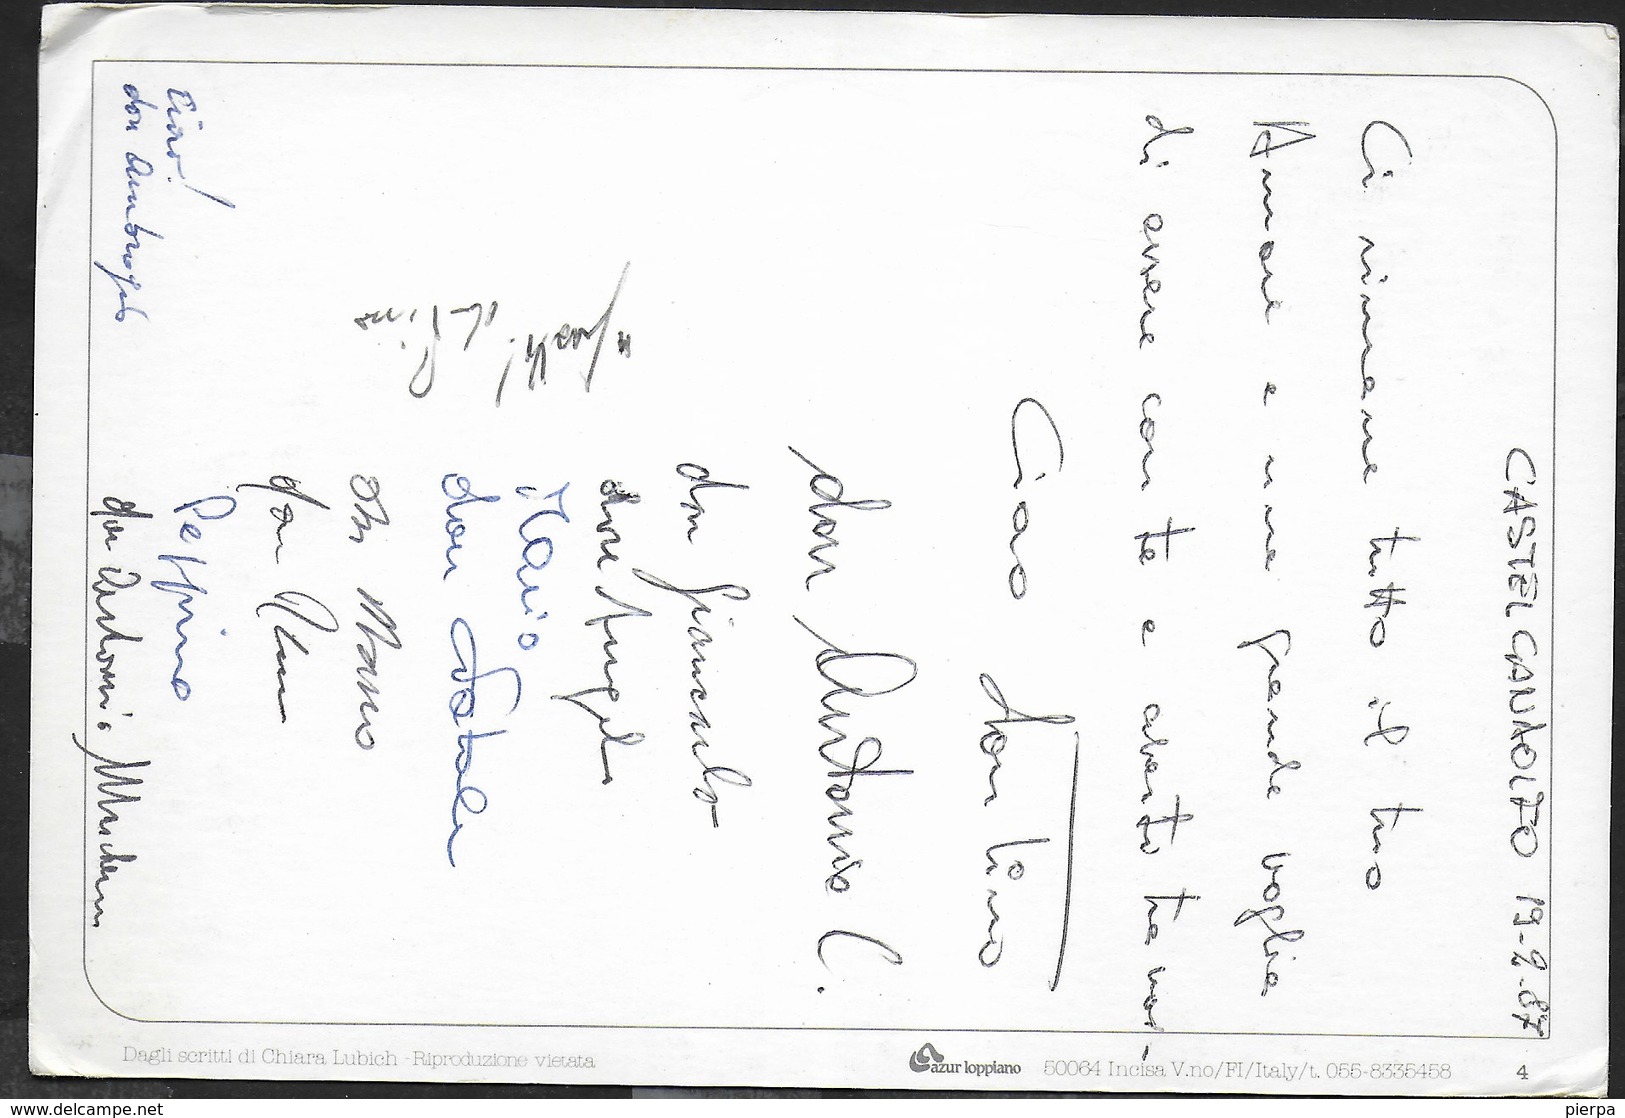 CASTELGANDOLFO 19-2-87
Ci rimane tutto il tuo
Amore e una grande voglia
di essere con te e averti tra noi-
Ciao don Lino
don Antonio C.
don Giancarlo
don Angelo
Mario
don Natale
don Mario
don
Peppino
don Antonio
don Pino
Ciao!
don Ambrogio
Dagli scritti di Chiara Lubich - Riproduzione vietata
azur loppiano
50064 Incisa V.no/FI/Italy/t. 055-8335458
4
www.delcampe.net
pierpa